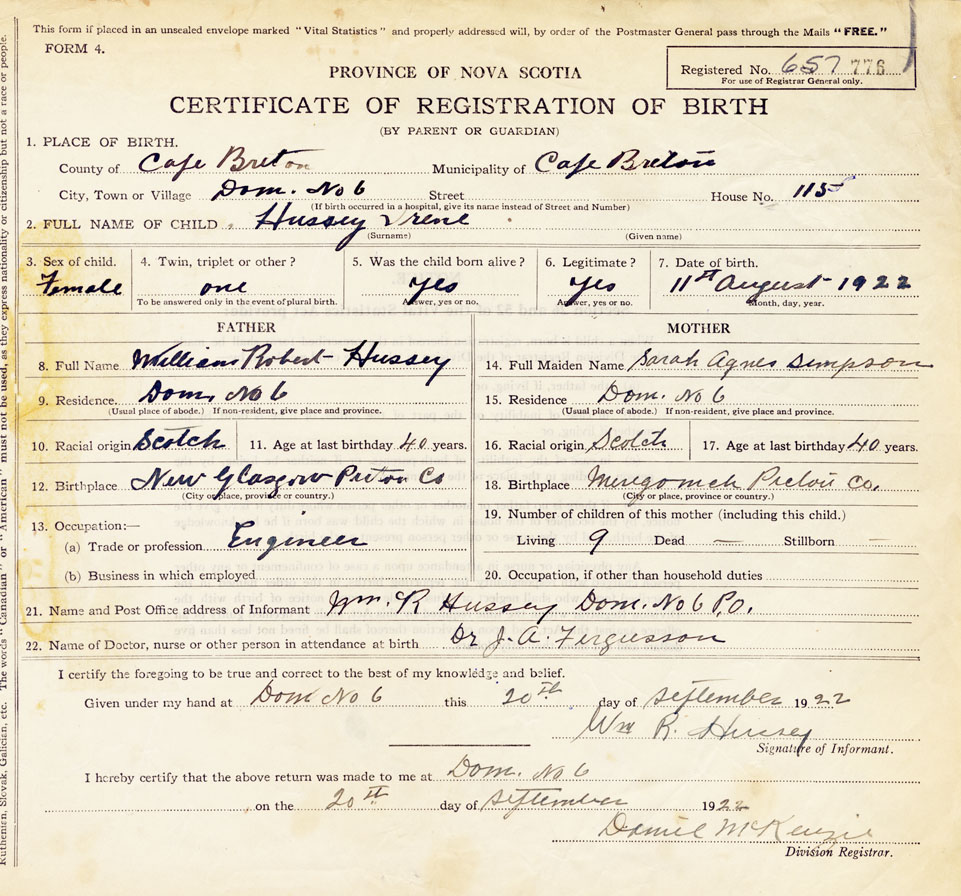 This form if placed in an unsealed envelope marked "Vital Statistics" and properly addressed will, by order of the Postmaster General pass through the Mails "FREE."
FORM 4.
Registered No. 657 776
For use of Registrar General only.
PROVINCE OF NOVA SCOTIA
CERTIFICATE OF REGISTRATION OF BIRTH
(BY PARENT OR GUARDIAN)
1. PLACE OF BIRTH.
County of Cape Breton Municipality of Cape Breton
City, Town or Village Dom. No 6 Street House No. 115
(If birth occurred in a hospital, give its name instead of Street and Number)
2. FULL NAME OF CHILD Hussey Irene
(Surname) (Given name)
3. Sex of child. 4. Twin, triplet or other? 5. Was the child born alive? 6. Legitimate? 7. Date of birth.
Female one Yes Yes 11st August 1922
To be answered only in the event of plural birth. Answer, yes or no. Answer, yes or no. Month, day, year.
FATHER MOTHER
8. Full Name William Robert Hussey 14. Full Maiden Name Sarah Agnes Simpson
9. Residence. Dom. No 6 15. Residence Dom. No 6
(Usual place of abode.) If non-resident, give place and province. (Usual place of abode.) If non-resident, give place and province.
10. Racial origin Scotch 11. Age at last birthday 40 years. 16. Racial origin Scotch 17. Age at last birthday 40 years.
12. Birthplace New Glasgow Pictou Co 18. Birthplace Merigomish Pictou Co.
(City or place, province or country.) (City or place, province or country.)
13. Occupation:— 19. Number of children of this mother (including this child.)
(a) Trade or profession Engineer Living 9 Dead — Stillborn —
(b) Business in which employed 20. Occupation, if other than household duties
21. Name and Post Office address of Informant Wm. R Hussey Dom. No 6 P.O.
22. Name of Doctor, nurse or other person in attendance at birth Dr J. A. Fergusson
I certify the foregoing to be true and correct to the best of my knowledge and belief.
Given under my hand at Dom No 6 this 20th day of September 1922
Wm R. Hussey
Signature of Informant.
I hereby certify that the above return was made to me at Dom. No 6
on the 20th day of September 1922
Daniel McKenzie
Division Registrar.
Ruthenian, Slovak, Galician, etc. The words "Canadian" or "American" must not be used, as they express nationality or citizenship but not a race or people.